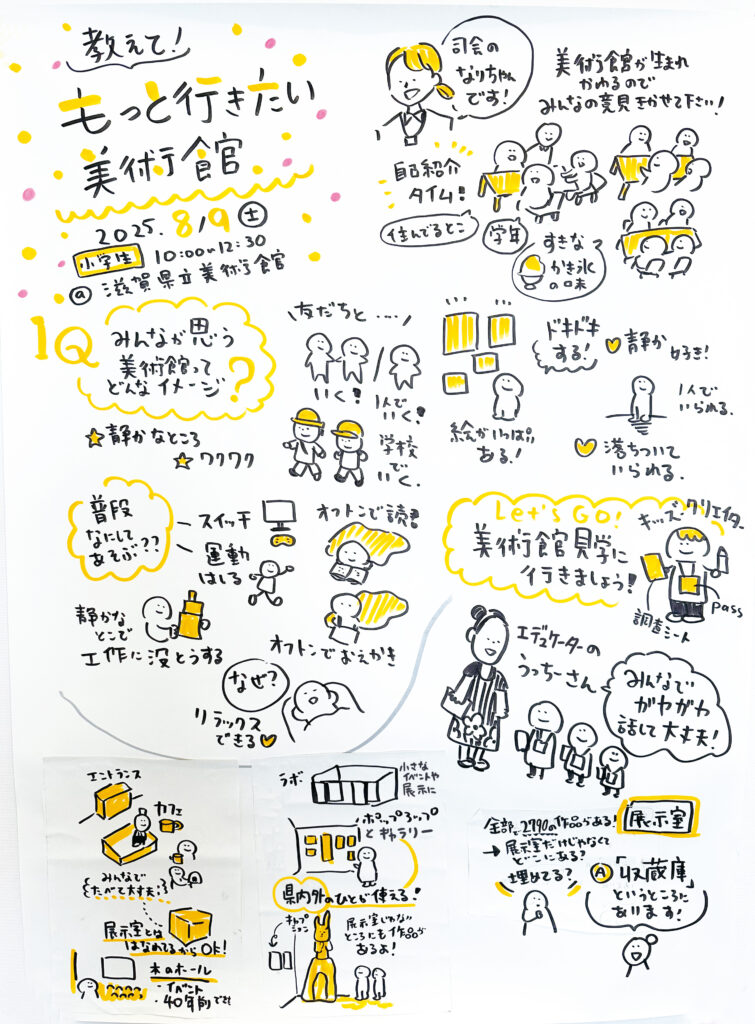 教えて!
もっと行きたい
美術館
2025. 8/9 土
小学生 10:00〜12:30
@ 滋賀県立美術館
司会の
なりちゃん
です!
美術館が生まれ
かわるので
みんなの意見をきかせて下さい!
自己紹介
タイム!
住んでるとこ
学年
すきな
かき氷
の味
1Q
みんなが思う
美術館って
どんなイメージ?
静かなところ
ワクワク
友だちと....
いく!
1人で
いく!
学校
でいく
絵がいっぱい
ある!
ドキドキ
する!
静か 好き!
1人で
いられる.
落ちついて
いられる.
普段
なにして
あそぶ??
スイッチ
運動
はしる
静かな
とこで
工作に没とうする
オフトンで読書
オフトンでおえかき
なぜ?
リラックス
できる
Let's GO!
美術館見学に
行きましょう!
キッズ・クリエイター
調査シート
Pass
エデュケーターの
うっちーさん
みんなで
ガヤガヤ
話して大丈夫!
エントランス
カフェ
みんなで
たべて大丈夫!
展示室とは
はなれてるからOK!
木のホール
・イベント
・40年前
ラボ
小さな
イベントや
展示に
ポップアップ
と ギャラリー
県内外のひとが使える!
キャプ
ション
展示室じゃない
ところにも作品が
あるよ!
展示室
全部で2790の作品がある!
→展示室だけじゃなくて
どこにある?
埋めてる?
A 「収蔵庫」
というところに
あります!